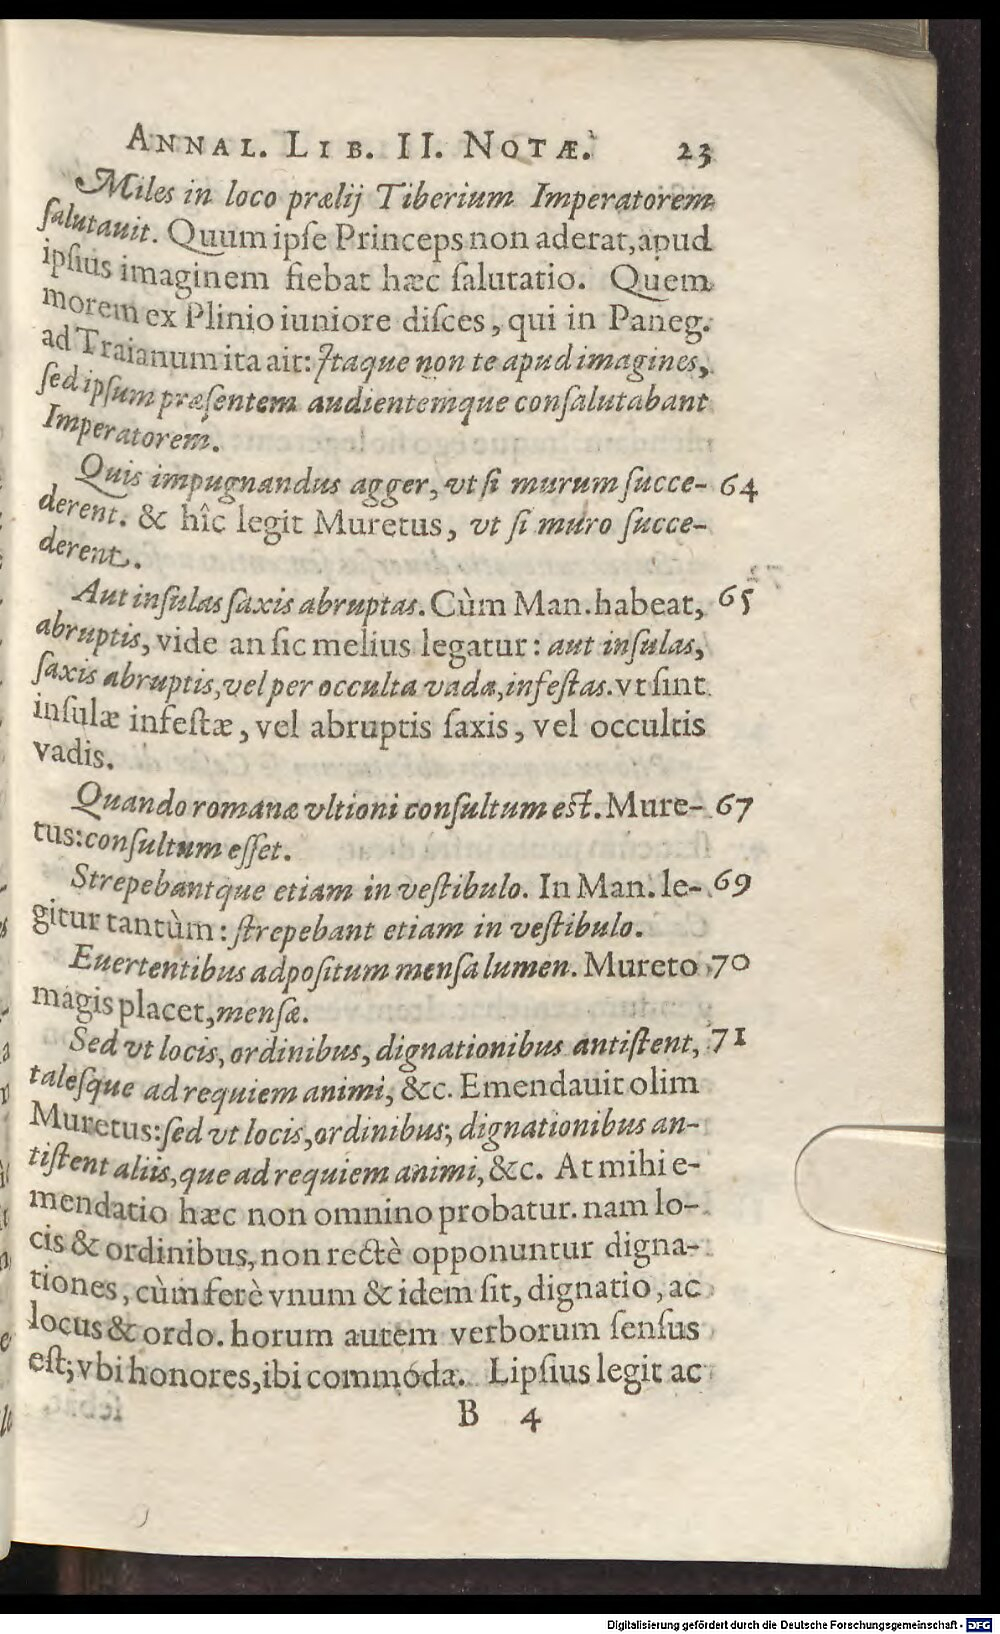 ANNAL. LIB. II. NOTÆ. 23
Miles in loco prælij Tiberium Imperatorem
ſalutauit. Quum ipſe Princeps non aderat, apud
ipſius imaginem fiebat hæc ſalutatio. Quem
morem ex Plinio iuniore diſces, qui in Paneg.
ad Traianum ita ait: Itaque non te apud imagines,
ſed ipſum præſentem audientemque conſalutabant
Imperatorem.
Quis impugnandus agger, vt ſi murum ſucce- 64
derent. & hîc legit Muretus, vt ſi muro ſucce-
derent.
Aut inſulas ſaxis abruptas. Cùm Man. habeat, 65
abruptis, vide an ſic melius legatur: aut inſulas,
ſaxis abruptis, vel per occulta vada, infeſtas. vt ſint
inſulæ infeſtæ, vel abruptis ſaxis, vel occultis
vadis.
Quando romanæ vltioni conſultum eſt. Mure- 67
tus: conſultum eſſet.
Strepebantque etiam in veſtibulo. In Man. le- 69
gitur tantùm: ſtrepebant etiam in veſtibulo.
Euertentibus adpoſitum menſa lumen. Mureto 70
magis placet, menſæ.
Sed vt locis, ordinibus, dignationibus antiſtent, 71
taleſque ad requiem animi, &c. Emendauit olim
Muretus: ſed vt locis, ordinibus; dignationibus an-
tiſtent aliis, que ad requiem animi, &c. At mihi e-
mendatio hæc non omnino probatur. nam lo-
cis & ordinibus, non rectè opponuntur digna-
tiones, cùm ferè vnum & idem ſit, dignatio, ac
locus & ordo. horum autem verborum ſenſus
eſt; vbi honores, ibi commoda. Lipſius legit ac
B 4
Digitalisierung gefördert durch die Deutsche Forschungsgemeinschaft - DFG